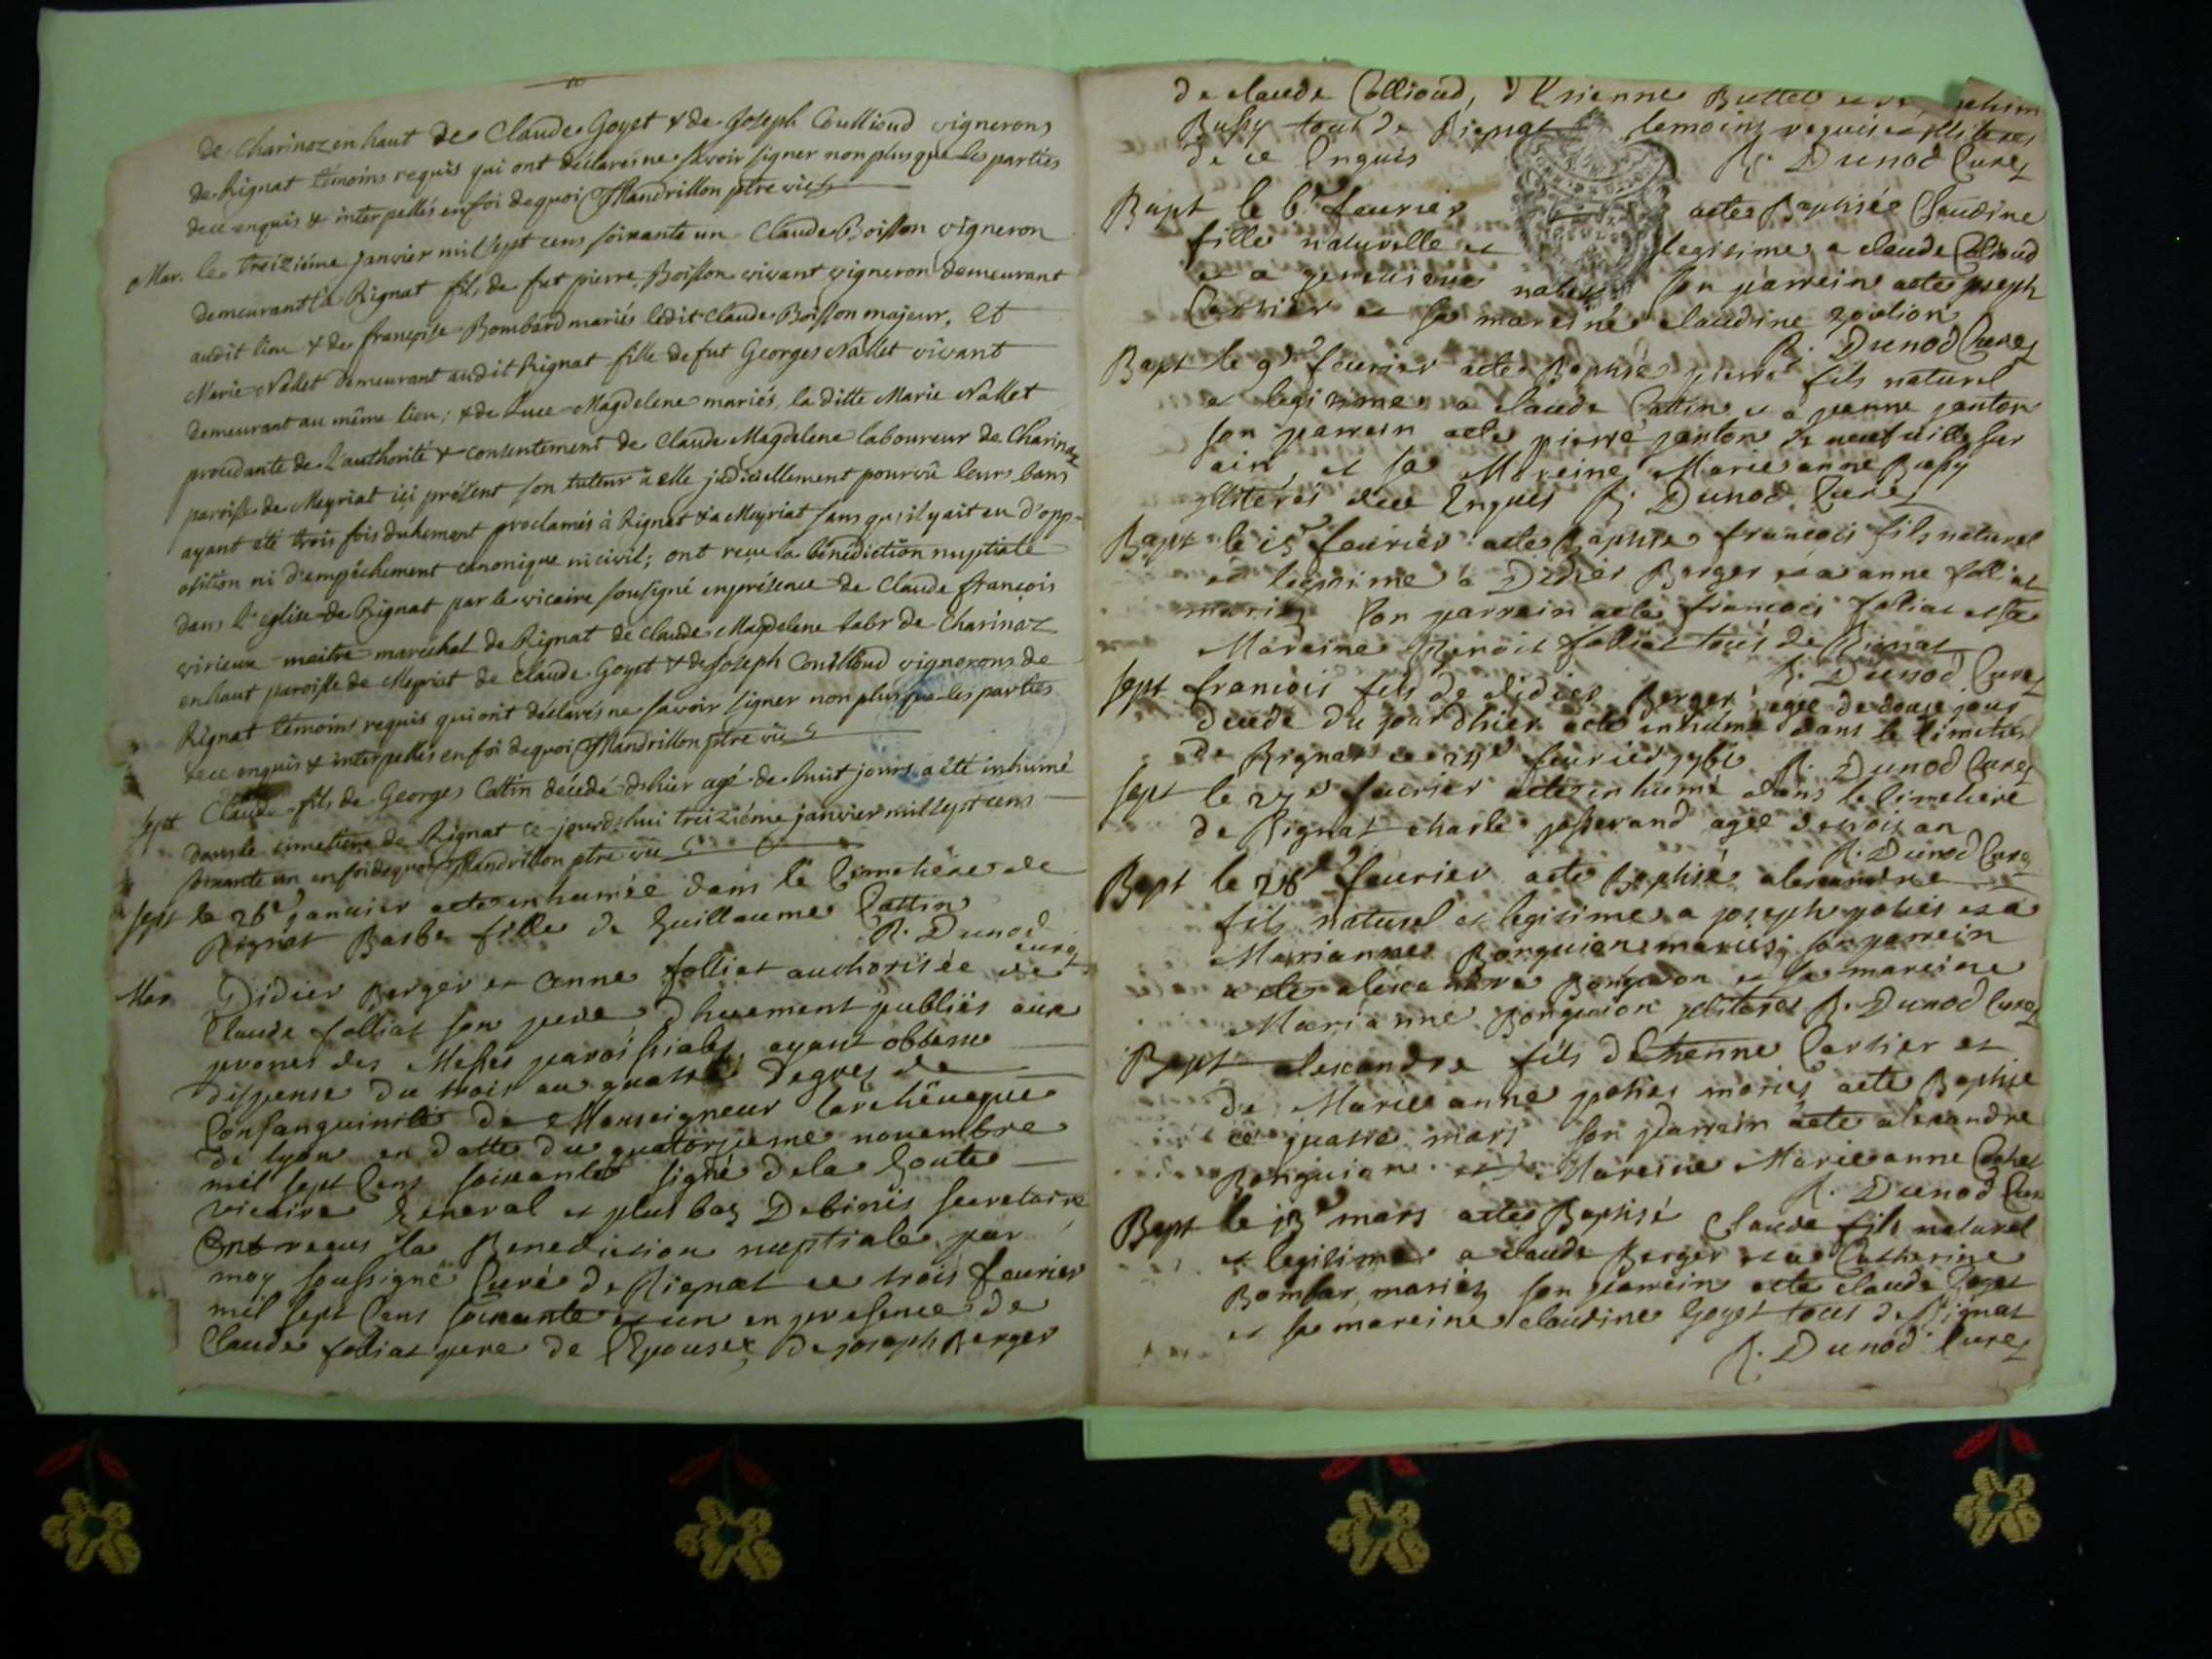 de Charinaz en haut de Claude Goyet & de Joseph Coullioud vignerons
de Rignat témoins requis qui ont déclarés ne sçavoir signer non plus que les parties
de ce enquis & interpellés en foi de quoi Mandrillon ptre vic
Mar. le treiziéme janvier mil sept cens soixante un Claude Boisson vigneron
demeurant à Rignat fils de fut pierre Boisson vivant vigneron demeurant
audit lieu & de françoise Bombard mariés ledit Claude Boisson majeur, et
Marie Nallet demeurant audit Rignat fille de fut Georges Nallet vivant
demeurant au même lieu; & de Luce Magdelene mariés, la ditte Marie Nallet
procédante de l'authorité & consentement de Claude Magdelene laboureur de Charinaz
paroisse de Meyriat içi présent son tuteur à elle judiciellement pourvû leurs bans
ayant été trois fois duhement proclamés à Rignat & a Meyriat sans qu'il y ait eu d'opp-
osition ni d'empêchement canonique ni civil; ont reçu la bénédiction nuptiale
dans l'église de Rignat par le vicaire sousigné en présence de Claude françois
virieux maitre maréchal de Rignat de Claude Magdelene labr de Charinaz
en haut paroisse de Meyriat de Claude Goyet & de Joseph Coullioud vignerons de
Rignat témoins requis qui ont déclarés ne savoir signer non plus que les parties
de ce enquis & interpellés en foi de quoi Mandrillon ptre vic
sept Claude fils de Georges Cattin décédé d'hier agé de huit jours a été inhumé
dans le cimetiere de Rignat ce jourd'hui treiziéme janvier mil sept cens
soixante un en foi de quoi Mandrillon ptre vic
sept le 26e janvier aeté enhumée dans le Cimetiére de
Rignat Barbe fille de Guillaume Cattin
R. Dunod
curé
Mar Didier Berger et Anne folliat authorisée de
Claude folliat son pere dhuement publiés aux
prones des Messes paroissiales, ayant obtenu
dispense du trois au quatre degrez de
Consanguinité de Monseigneur larchêveque
de lyon en datte du quatorzieme novembre
mil sept Cens soixante signé dela Goute
vicaire General et plus bas Debinis secretaire
Ont reçus la Benediction nuptiale par
moy soussigné Curé de Rignat ce trois feurier
mil sept Cens soixante et un en presence de
Claude folliat pere de l'Epouse, de joseph Berger
de claude Collioud, d'Etienne Buttet et de
Bussy tous de Rignat temoins requis et illiteres
de ce Enquis R. Dunod Curé
Bapt le 6e feurier aeté Baptisée Claudine
fille naturelle et legitime a claude Colioud
et a son parrein aeté joseph
Cartier et sa mareine claudine
R. Dunod Curé
Bapt le 9e feurier aeté Baptisé pierre fils naturel
et legitime a claude Cattin et a jeanne janton
son parrein aeté pierre janton de neufville sur
ain, et sa Mareine Marie anne Bussy
illiterés de ce Enquis R. Dunod Curé
Bapt le 15e feurier aeté Baptisé francois fils naturel
et legitime a Didier Berger et a anne folliat
mariez son parrein aeté francois foliat et sa
Mareine Benoit folliat tous de Rignat
R. Dunod Curé
sept francois fils de didier Berger agée de douze jour
decede du jour dhier aeté enhumé dans le Cimetier
de Rignat ce feurier R. Dunod Curé
sept le 27e feurier aeté enhumé dans le Cimetiere
de Rignat charle josserand agée de trois an
R. Dunod Curé
Bapt le 28e feurier aeté Baptisé alexandre
fils naturel et legitime a joseph et a
Marianne mariés; son parrein
aeté alexandre et sa mareine
Marianne illiteres R. Dunod Curé
Bapt alexandre fils dEtienne Cartier et
de Marie anne mariés aeté Baptisé
ce quatre mars son parrein aeté alexandre
et Mareine Marie anne
R. Dunod Curé
Bapt le 13e mars aeté Baptisé Claude fils naturel
et legitime a claude Berger et a Catherine
Bombar mariéz son parrein aeté claude Goyet
et sa mareine claudine Goyet tous de Rignat
R. Dunod Curé